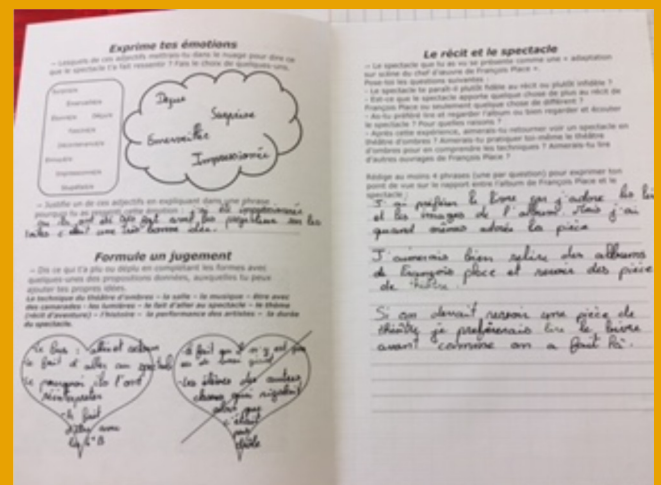 Exprime tes émotions
— Lesquels de ces adjectifs mettrais-tu dans le nuage pour dire ce
que le spectacle t'a fait ressentir ? Fais le choix de quelques-uns.
Émerveillé/e
Déçu/e
Impressionné/e
Stupéfait/e
Déçue
Surprise
Emerveillée
Impressionnée
— Justifie un de ces adjectifs en expliquant dans une phrase
pourquoi tu as ressenti cette émotion : j'ai été impressionnée
toiles c'était une très bonne idée.
Formule un jugement
— Dis ce qui t'a plu ou déplu en complétant les formes avec
quelques-unes des propositions données, auxquelles tu peux
ajouter tes propres idées.
La technique du théâtre d'ombres – la salle – la musique – être avec
des camarades – les lumières – le fait d'aller au spectacle – le thème
(récit d'aventure) – l'histoire – la performance des artistes – la durée
du spectacle.
le fait d'aller au spectacle
ils l'ont
le fait
avec
le fait qu'il n'y ait pas
les élèves des autres
classes qui rigolaient
alors que
c'était
pas
drôle
Le récit et le spectacle
— Le spectacle que tu as vu se présente comme une « adaptation
sur scène du chef d'œuvre de François Place ».
Pose-toi les questions suivantes :
- Le spectacle te paraît-il plutôt fidèle au récit ou plutôt infidèle ?
- Est-ce que le spectacle apporte quelque chose de plus au récit de
François Place ou seulement quelque chose de différent ?
- As-tu préféré lire et regarder l'album ou bien regarder et écouter
le spectacle ? Pour quelles raisons ?
- Après cette expérience, aimerais-tu retourner voir un spectacle en
théâtre d'ombres ? Aimerais-tu pratiquer toi-même le théâtre
d'ombres pour en comprendre les techniques ? Aimerais-tu lire
d'autres ouvrages de François Place ?
Rédige au moins 4 phrases (une par question) pour exprimer ton
point de vue sur le rapport entre l'album de François Place et le
spectacle :
J'ai préféré le livre car j'adore les
et les images de l'album. Mais j'ai
quand même adoré la pièce
J'aimerais bien relire des albums
de François place et revoir des pièce
de théâtre.
Si on devait revoir une pièce de
théâtre je préfèrerais lire le livre
avant comme on a fait là.